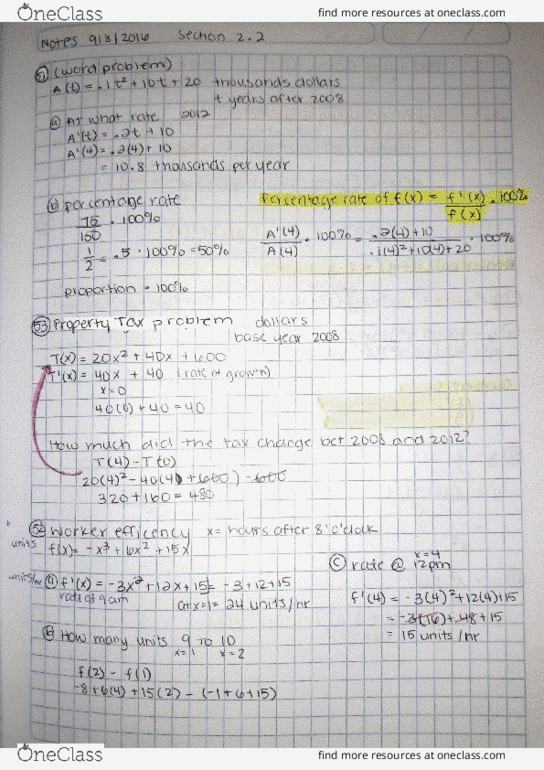 OneClass
find more resources at oneclass.com
Notes 9/8/2016 Section 2.2
51 (word problem)
A(t) = .1t² + 10t + 20 thousands dollars
t years after 2008
(a) At what rate 2012
A'(t) = .2t + 10
A'(4) = .2(4) + 10
= 10.8 thousands per year
(b) percentage rate
Percentage rate of f(x) = f'(x)/f(x) · 100%
75/150 · 100%
A'(4)/A(4) · 100% = .2(4)+10/.1(4)²+10(4)+20 · 100%
1/2 = .5 · 100% = 50%
proportion · 100%
53 Property Tax problem dollars
base year 2008
T(x) = 20x² + 40x + 600
T'(x) = 40x + 40 (rate of growth)
x = 0
40(0) + 40 = 40
How much did the tax change bet 2008 and 2012?
T(4) - T(0)
20(4)² - 40(4) + 600) - 600
320 + 160 = 480
52 Worker efficency x = hours after 8 o'clock
units f(x) = -x³ + 6x² + 15x
(c) rate @ x=4 12pm
units/hr (a) f'(x) = -3x² + 12x + 15 = -3 + 12 + 15
rate at 9am
at x=1 = 24 units/hr
f'(4) = -3(4)² + 12(4) + 15
= -3(16) + 48 + 15
= 15 units/hr
(b) How many units 9 to 10
x=1 x=2
f(2) - f(1)
-8 + 6(4) + 15(2) - (-1 + 6 + 15)
OneClass
find more resources at oneclass.com